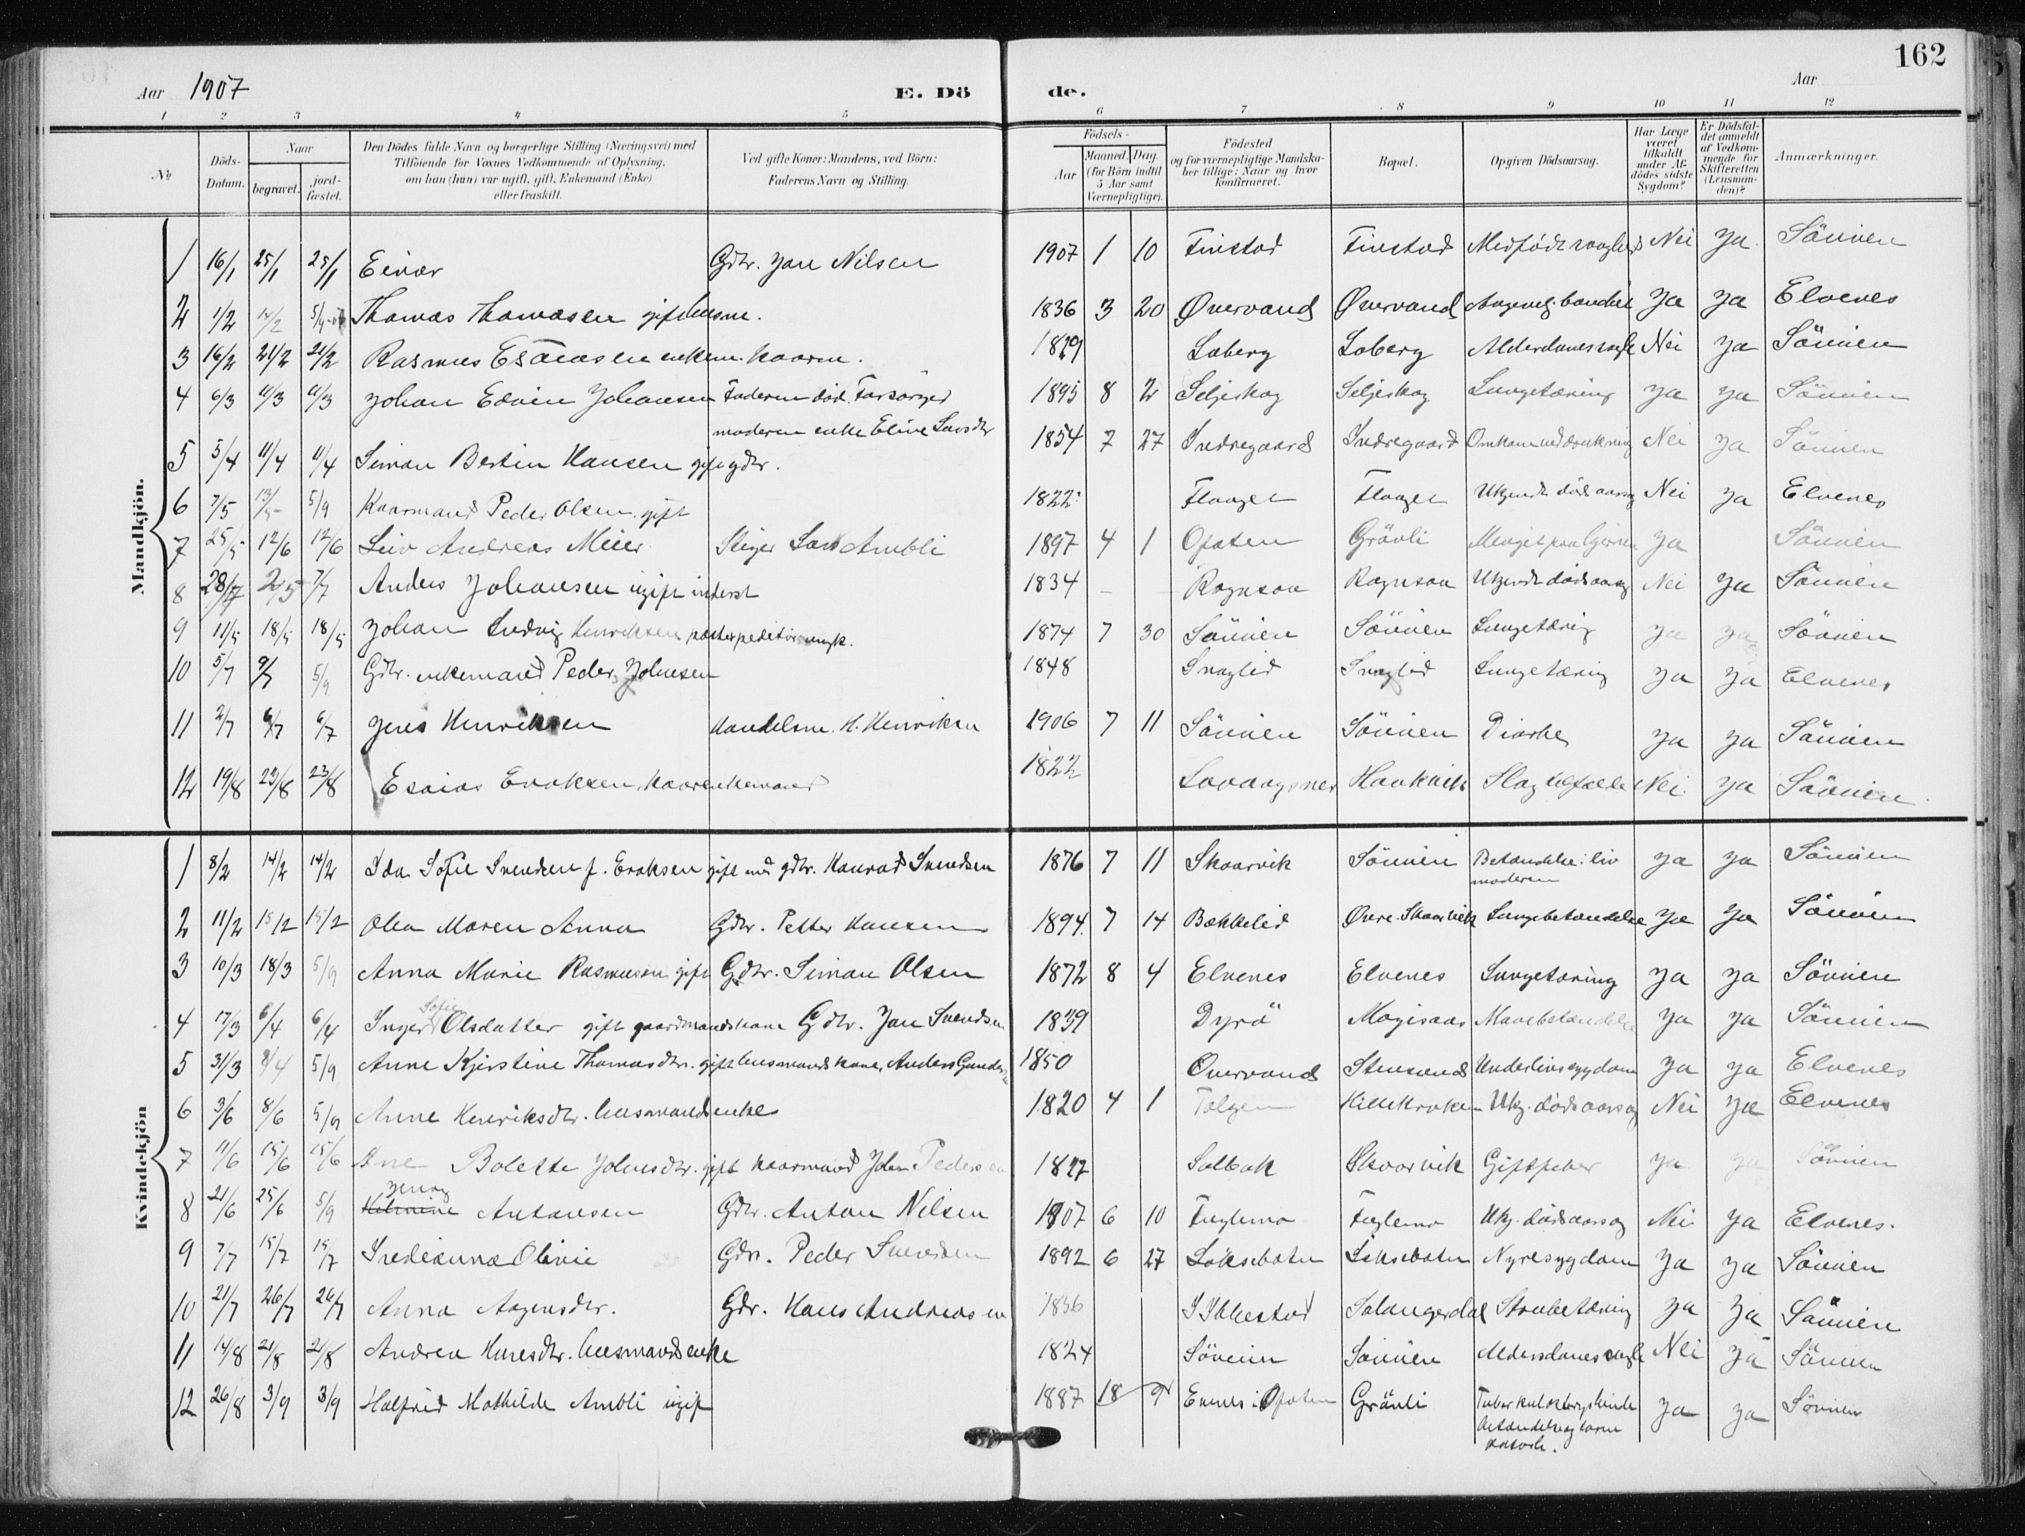 162
Aar 1907 E. Dö de. Aar
1 2 3 4 5 6 7 8 9 10 11 12
№ Döds-Datum. Naar begravet. jord-fæstet. Den Dödes fulde Navn og borgerlige Stilling (Næringsvei) med Tilföiende for Voxnes Vedkommende af Oplysning, om han (hun) var ugift, gift, Enkemand (Enke) eller fraskilt. Ved gifte Koner: Mandens, ved Börn: Faderens Navn og Stilling. Födsels- Aar Maaned. Dag. (for Börn indtil 5 Aar samt Værnepligtige). Födested og for værnepligtige Mandskaber tillige: Naar og hvor konfirmeret. Bopæl. Opgiven Dödsaarsag. Har Læge været tilkaldt under Afdödes sidste Sygdom? Er Dödsfaldet anmeldt af Vedkommende for Skifteretten (Lensmanden)? Anmærkninger.
Mandkjön.
1 16/1 25/1 25/1 Einar Gdbr. Jon Nilsen 1907 1 10 Finstad Finstad Medfödt svaghed Nei Ja Sövien
2 1/2 14/2 Thomas Thomasen gift husm. 1836 3 20 Øvervand Øvervand Ja Ja Elvenes
3 16/2 21/2 21/2 Rasmus Esaiasen enkem. kaarm. 1829 Loberg Loberg Alderdomssvagh Nei Ja Sövien
4 6/3 11/3 11/3 Johan Edvin Johansen Faderen död. Forsörger
moderen enke Eline Larsdtr 1895 8 2 Seljeskog Seljeskog Lungetæring Ja Ja Sövien
5 5/4 11/4 11/4 Simon Bertin Hansen gift gdbr. 1854 7 27 Indregaard Indregaard Omkom ved drukning Nei Ja Sövien
6 7/5 13/5 5/9 Kaarmand Peder Olsen gift 1822 Flaaget Flaaget Ukjendt dödsaarsag Nei Ja Elvenes
7 25/5 12/6 12/6 Leiv Andreas Meier Stiger Lars Ambli 1897 4 1 Ofoten Grönli Ja Sövien
8 7/7 Anders Johansen ugift inderst 1834 - - Rognsaa Rognsaa Ukjendt dödsaarsag Nei Ja Sövien
9 11/5 18/5 18/5 Johan Ludvig Henriksen postexpeditör ungk. 1874 7 30 Sövien Sövien Lungetæring Ja Ja Sövien
10 5/7 9/7 5/9 Gdbr. enkemand Peder Johnsen 1848 Snoglid Snoglid Lungetæring Ja Ja Elvenes
11 2/7 6/7 6/7 Jens Henriksen Handelsm. H. Henriksen 1906 7 11 Sövien Sövien Diarhe Ja Ja Sövien
12 19/8 23/8 23/8 Esaias Enoksen kaarenkemand 1822 Havnvik Slagtilfælde Nei Ja Sövien
Kvindekjön
1 8/2 14/2 14/2 Ida Sofie Svendsen f. Enoksen gift med gdbr. Konrad Svendsen 1876 7 11 Skaarvik Sövien Betændelse i liv
moderen Ja Ja Sövien
2 11/2 15/2 15/2 Olea Maren Anna Gdbr. Petter Hansen 1894 7 14 Bækkelid Øvre Skaarvik Lungebetændelse Ja Ja Sövien
3 10/3 18/3 5/9 Anna Marie Rasmussen gift Gdbr. Simon Olsen 1872 8 4 Elvenes Elvenes Lungetæring Ja Ja Sövien
4 17/3 6/4 6/4 Inger Sofie Olsdatter gift gaardmandskone Gdbr. Jon Svendsen 1839 Dyrö Mogisaas Mavebetændelse Ja Ja Sövien
5 31/3 8/4 5/9 Anne Kjerstine Thomasdtr. gift husmandskone, Anders 1850 Øvervand Stensund Underlivssygdom Ja Ja Elvenes
6 3/6 8/6 5/9 Anne Henriksdtr. husmandsenke 1820 4 1 Tolgen Ukj. dödsaarsag Nei Ja Elvenes
7 11/6 15/6 15/6 Ane Bolette Johnsdtr. gift kaarmand John Pedersen Solbak Skaarvik Giftfeber Ja Ja Sövien
8 21/6 25/6 5/9 Jenny Antonsen Gdbr. Anton Nilsen 1907 6 10 Fuglemo Fuglemo Ukj. dödsaarsag Nei Ja Elvenes.
9 7/7 15/7 15/7 Indianna Olivie Gdbr. Peder Svendsen 1892 6 27 Löksebotn Löksebotn Nyresygdom Ja Ja Sövien
10 21/7 26/7 26/7 Anna Aagensdtr. Gdbr. Hans Andreasen 1836 I Ibbestad Salangsdal Strubetæring Ja Ja Sövien
11 14/8 21/8 21/8 Andrea Hansdtr. husmandsenke 1824 Sövien Sövien Alderdomssvaghe Nei Ja Sövien
12 26/8 3/9 3/9 Halfrid Mathilde Ambli ugift 1887 18 9 Evenes i Ofoten Grönli Ja Ja Sövien